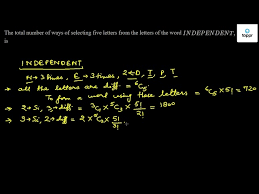 The total number of ways of selecting five letters from the letters of the word INDEPENDENT,
is
toppr
INDEPENDENT
N→3 times, E→3 times, 2←D, I, P, T
→ all the letters are diff = ⁶C₅
To form a word using these letters = ⁶C₅ × 5! = 720
→ 2→Si, 3→diff = ³C₁ × ⁵C₃ × 5!/2! = 1800
→ 3→Si, 2→diff = 2 × ⁵C₂ × 5!/3!